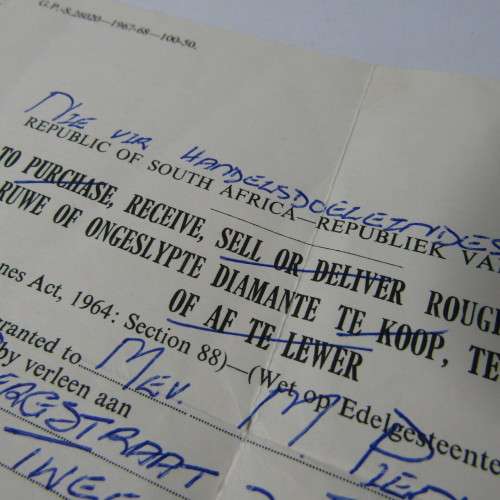 G.P.-S.26020—1967-68—100-50.
NIE VIR HANDELSDOELEINDES
REPUBLIC OF SOUTH AFRICA—REPUBLIEK VA
TO PURCHASE, RECEIVE, SELL OR DELIVER ROUGH
RUWE OF ONGESLYPTE DIAMANTE TE KOOP, TE
OF AF TE LEWER
nes Act, 1964: Section 88)—(Wet op Edelgesteente
ranted to MEV. M.
by verleen aan
STRAAT